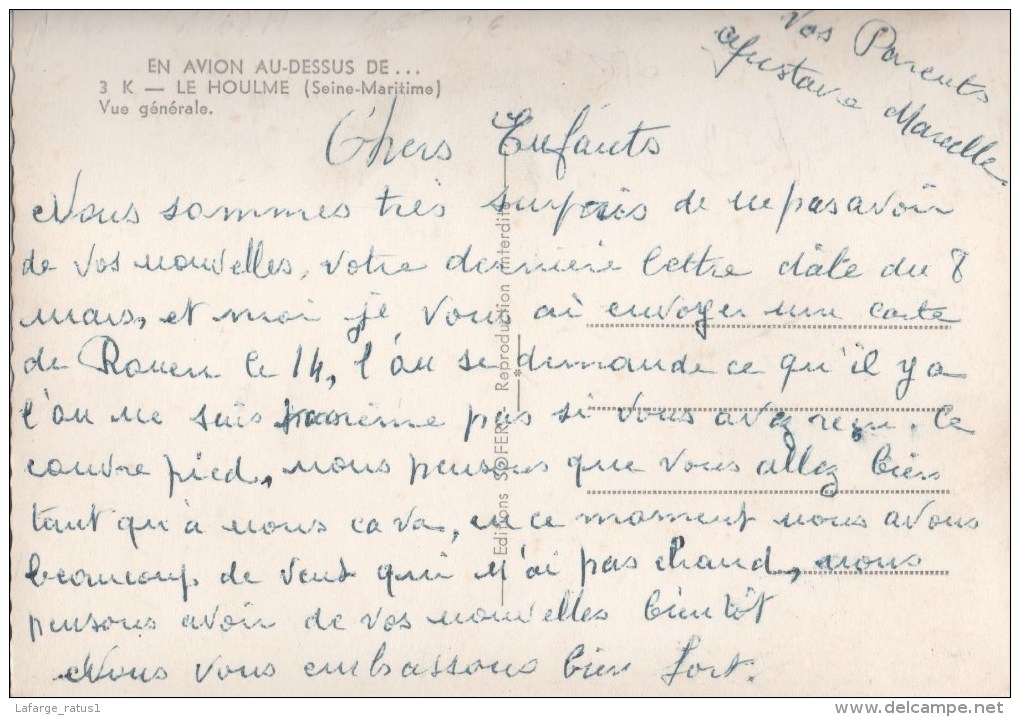 EN AVION AU-DESSUS DE...
3 K — LE HOULME (Seine-Maritime)
Vue générale.
Vos Parents
Gustave Marcelle
Chers Enfants
Nous sommes très surpris de ne pas avoir
de vos nouvelles, votre dernière lettre date du 8
mars, et moi je vous ai envoyer une carte
de Rouen le 14, l'on se demande ce qu'il y a
l'on ne sais même pas si vous avez reçu. le
couvre pied, nous pensons que vous allez bien
tant qu'à nous ca va, en ce moment nous avons
beaucoup de vent qui n'ai pas chaud, nous
pensons avoir de vos nouvelles bientôt
Nous vous embassons bien fort.
Editions SOFER Reproduction interdite
*
Lafarge_ratus1
www.delcampe.net